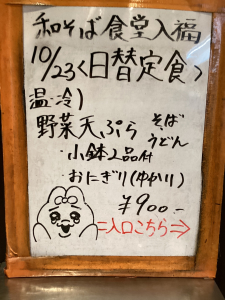 和そば食堂入福
10/23<日替定食>
温・冷)
野菜天ぷら そば うどん
・小鉢2品付
・おにぎり(ゆかり)
¥900-
=入口こちら⇒